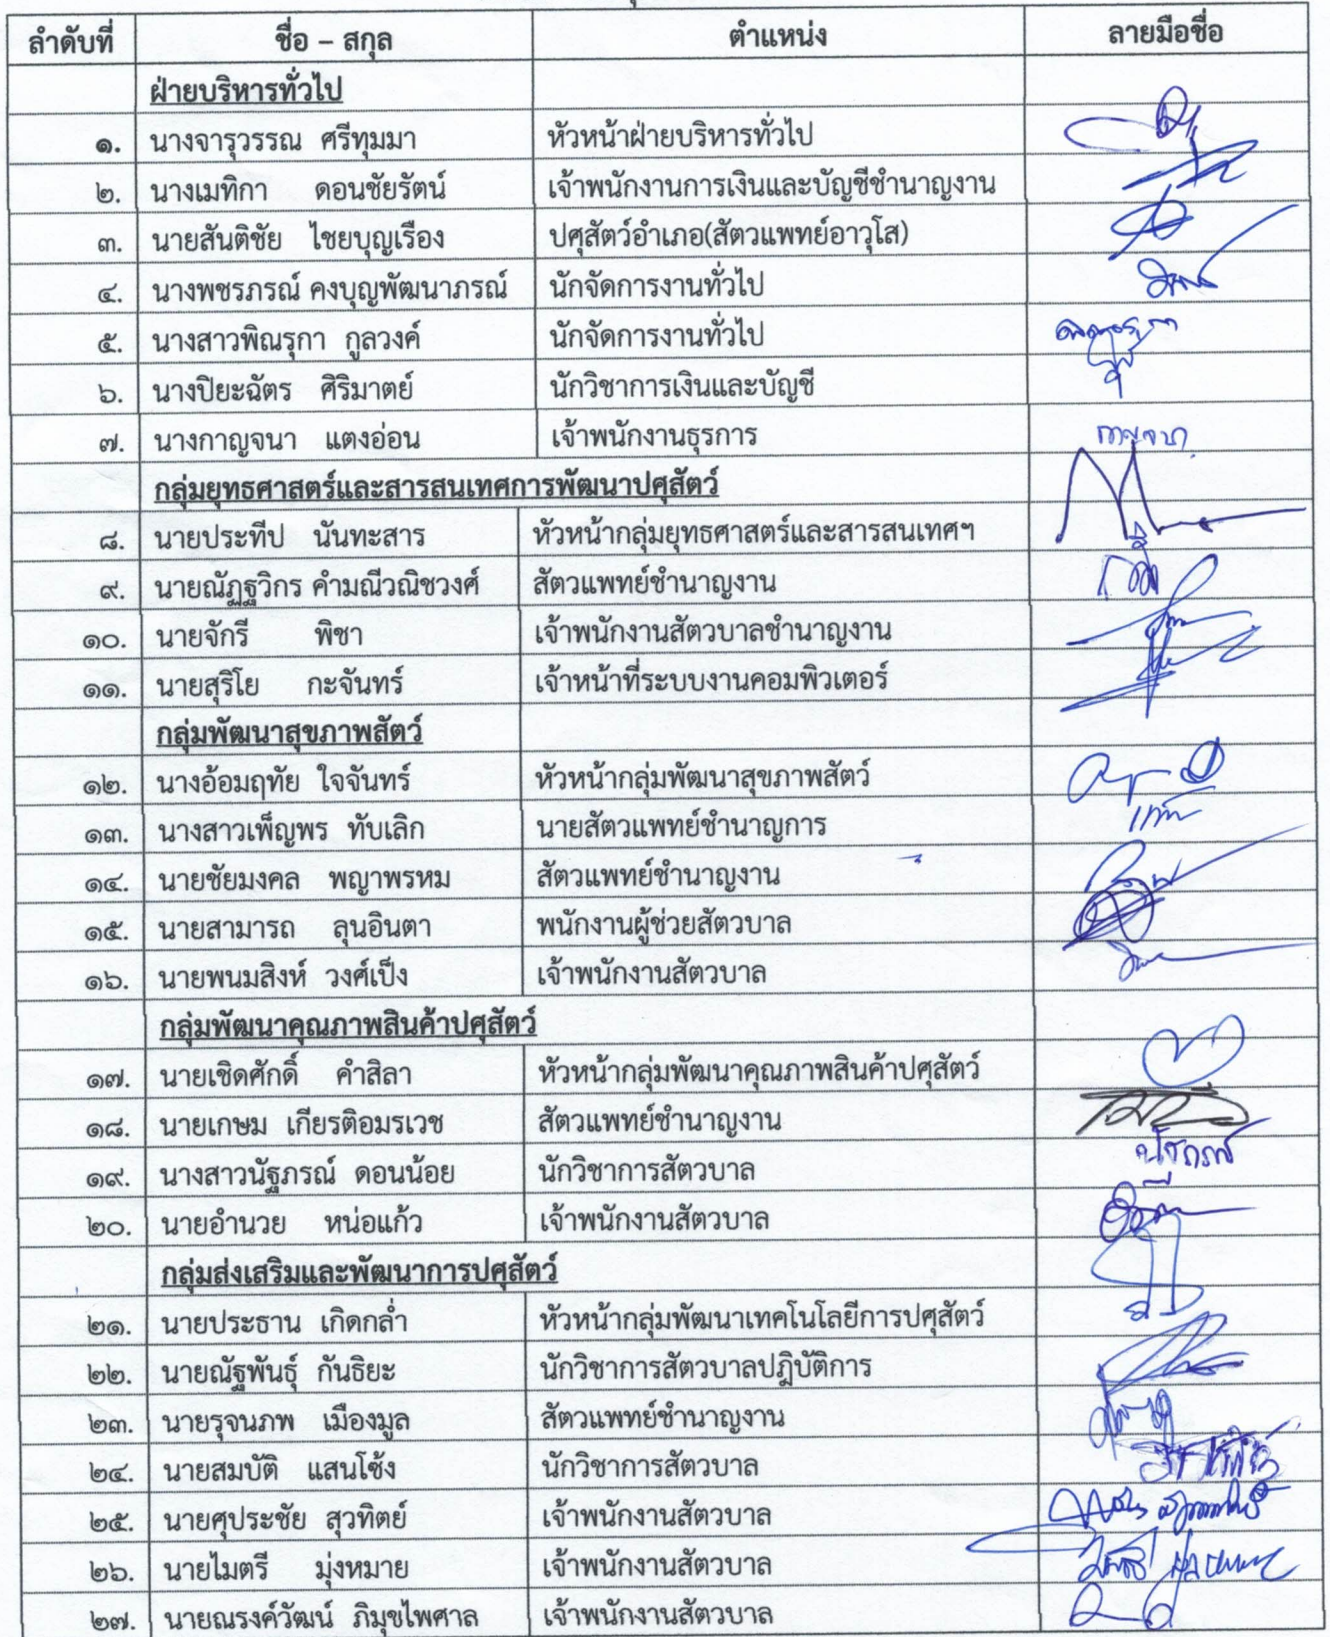 ลำดับที่ ชื่อ – สกุล ตำแหน่ง ลายมือชื่อ
ฝ่ายบริหารทั่วไป
๑. นางจารุวรรณ ศรีทุมมา หัวหน้าฝ่ายบริหารทั่วไป
๒. นางเมทิกา ดอนชัยรัตน์ เจ้าพนักงานการเงินและบัญชีชำนาญงาน
๓. นายสันติชัย ไชยบุญเรือง ปศุสัตว์อำเภอ(สัตวแพทย์อาวุโส)
๔. นางพชรภรณ์ คงบุญพัฒนาภรณ์ นักจัดการงานทั่วไป
๕. นางสาวพิณรุกา กูลวงค์ นักจัดการงานทั่วไป
๖. นางปิยะฉัตร ศิริมาตย์ นักวิชาการเงินและบัญชี
๗. นางกาญจนา แตงอ่อน เจ้าพนักงานธุรการ กาญจนา
กลุ่มยุทธศาสตร์และสารสนเทศการพัฒนาปศุสัตว์
๘. นายประทีป นันทะสาร หัวหน้ากลุ่มยุทธศาสตร์และสารสนเทศฯ
๙. นายณัฏฐวิกร คำมณีวณิชวงศ์ สัตวแพทย์ชำนาญงาน
๑๐. นายจักรี พิชา เจ้าพนักงานสัตวบาลชำนาญงาน
๑๑. นายสุริโย กะจันทร์ เจ้าหน้าที่ระบบงานคอมพิวเตอร์
กลุ่มพัฒนาสุขภาพสัตว์
๑๒. นางอ้อมฤทัย ใจจันทร์ หัวหน้ากลุ่มพัฒนาสุขภาพสัตว์
๑๓. นางสาวเพ็ญพร ทับเลิก นายสัตวแพทย์ชำนาญการ
๑๔. นายชัยมงคล พญาพรหม สัตวแพทย์ชำนาญงาน
๑๕. นายสามารถ ลุนอินตา พนักงานผู้ช่วยสัตวบาล
๑๖. นายพนมสิงห์ วงศ์เป็ง เจ้าพนักงานสัตวบาล
กลุ่มพัฒนาคุณภาพสินค้าปศุสัตว์
๑๗. นายเชิดศักดิ์ คำสิลา หัวหน้ากลุ่มพัฒนาคุณภาพสินค้าปศุสัตว์
๑๘. นายเกษม เกียรติอมรเวช สัตวแพทย์ชำนาญงาน
๑๙. นางสาวนัฐภรณ์ ดอนน้อย นักวิชาการสัตวบาล
๒๐. นายอำนวย หน่อแก้ว เจ้าพนักงานสัตวบาล
กลุ่มส่งเสริมและพัฒนาการปศุสัตว์
๒๑. นายประธาน เกิดกล่ำ หัวหน้ากลุ่มพัฒนาเทคโนโลยีการปศุสัตว์
๒๒. นายณัฐพันธุ์ กันธิยะ นักวิชาการสัตวบาลปฎิบัติการ
๒๓. นายรุจนภพ เมืองมูล สัตวแพทย์ชำนาญงาน
๒๔. นายสมบัติ แสนโซ้ง นักวิชาการสัตวบาล
๒๕. นายศุประชัย สุวทิตย์ เจ้าพนักงานสัตวบาล
๒๖. นายไมตรี มุ่งหมาย เจ้าพนักงานสัตวบาล
๒๗. นายณรงค์วัฒน์ ภิมุขไพศาล เจ้าพนักงานสัตวบาล